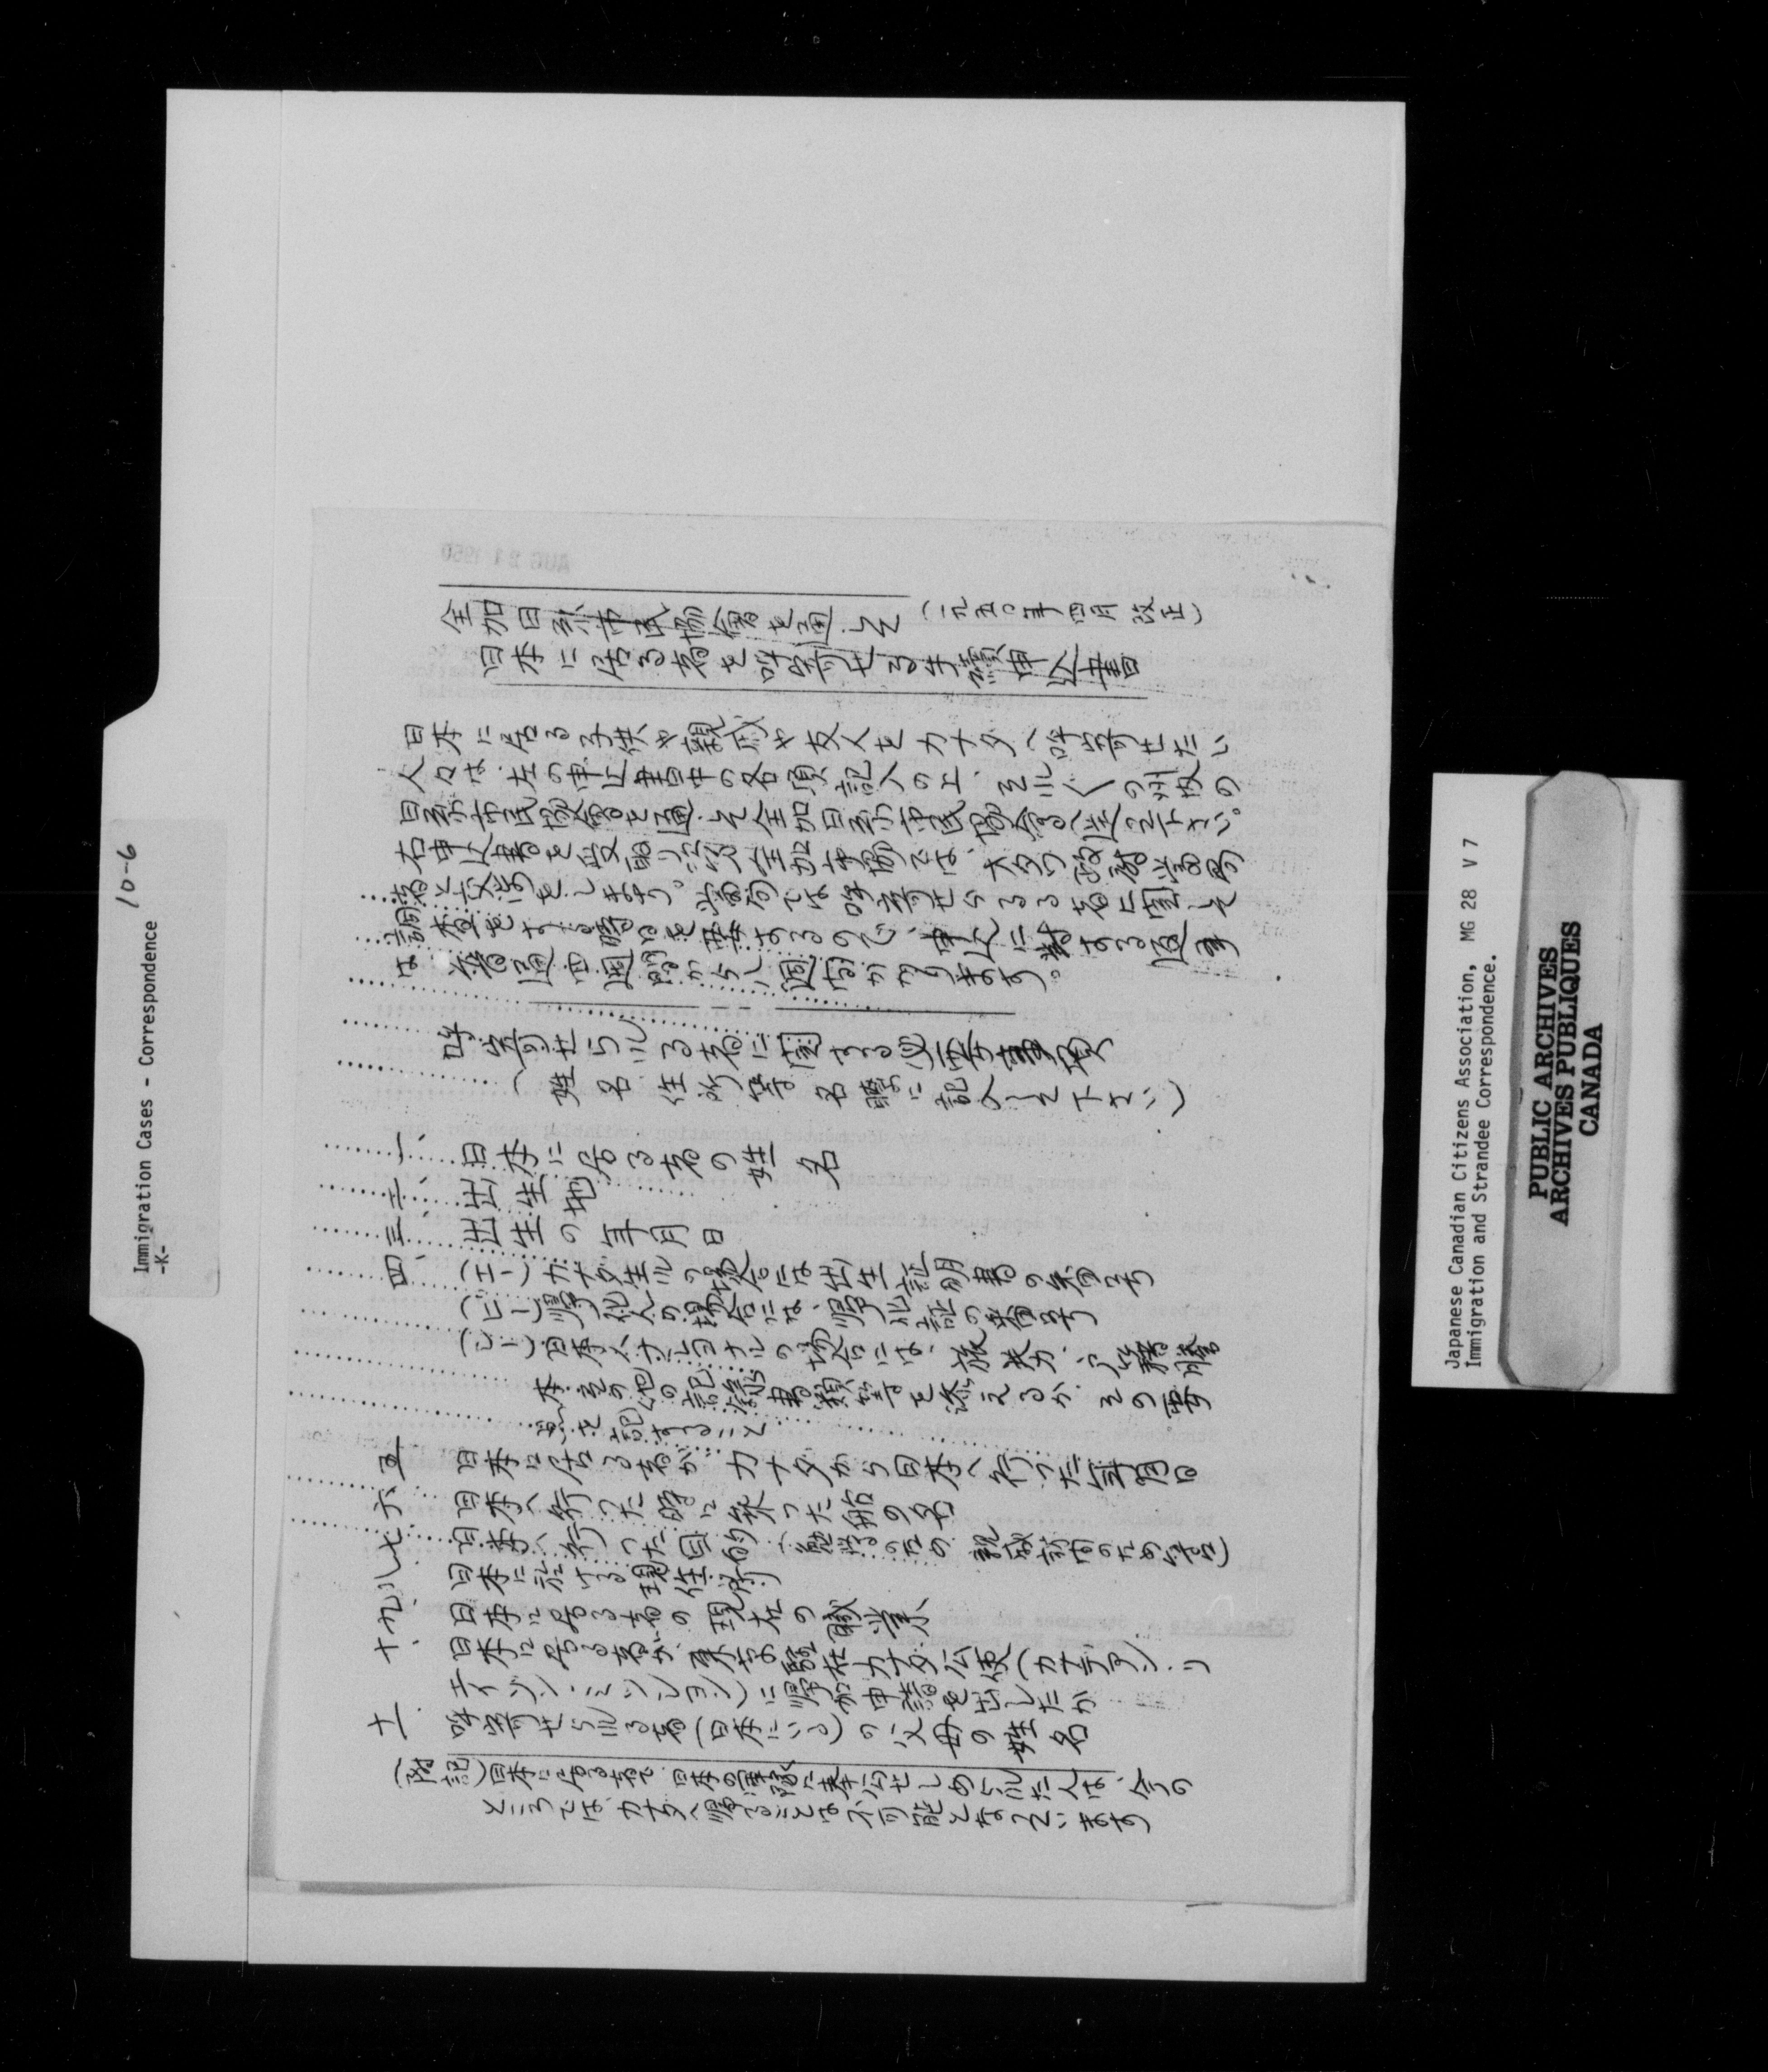 Immigration Cases - Correspondence 10-6
-K-
AUG 21 1950
全加日系市民協會を通して (一九五〇年四月改正)
日本に居る者を呼寄せる手續申込書
日本に居る子供や親戚や友人をカナダへ呼寄せたい
人々は、左の申込書中の各項記入の上、それ〲の州支の
日系市民協會を通して全加日系市民協會へ送って下さい。
右申込書を受取り次第全加市協では、オタワ政府当局
に交渉をします。当局では呼寄せらるる者に関して
調査をする時日を要するので、申込に対する返事
は、普通四週間から八週間かかります。
呼寄せられる者に関する必要事項
(姓名、住所等、名瞭に記入して下さい)
一、日本に居る者の姓名
二、出生地
三、出生の年月日
四、(エー)カナダ生れの場合は出生証明書の番号
(ビー)歸化人の場合は、歸化証の番号
(シー)日本ナショナルの場合には、旅券、戸籍謄
本、その他の記録書類等を添えるか、その要
点を記すること
五、日本に居る者が、カナダから日本へ行った年月日
六、日本へ行った時に乗った船の名
七、日本へ行った目的(勉学のため、親戚訪問のため等)
八、日本に於ける現住所
九、日本に居る者の現在の職業
十、日本に居る者が、東京の駐在カナダ公使(カナディアン・リ
エイゾン・ミッション)に歸加申請を出したか
十一、呼寄せられる者(日本にいる)の父母の姓名
(附記)日本に居る者で、日本の軍隊に奉仕せしめられた人は、今の
ところでは、カナダへ歸ることは不可能となっています
Japanese Canadian Citizens Association, MG 28 V 7
Immigration and Strandee Correspondence.
PUBLIC ARCHIVES
ARCHIVES PUBLIQUES
CANADA